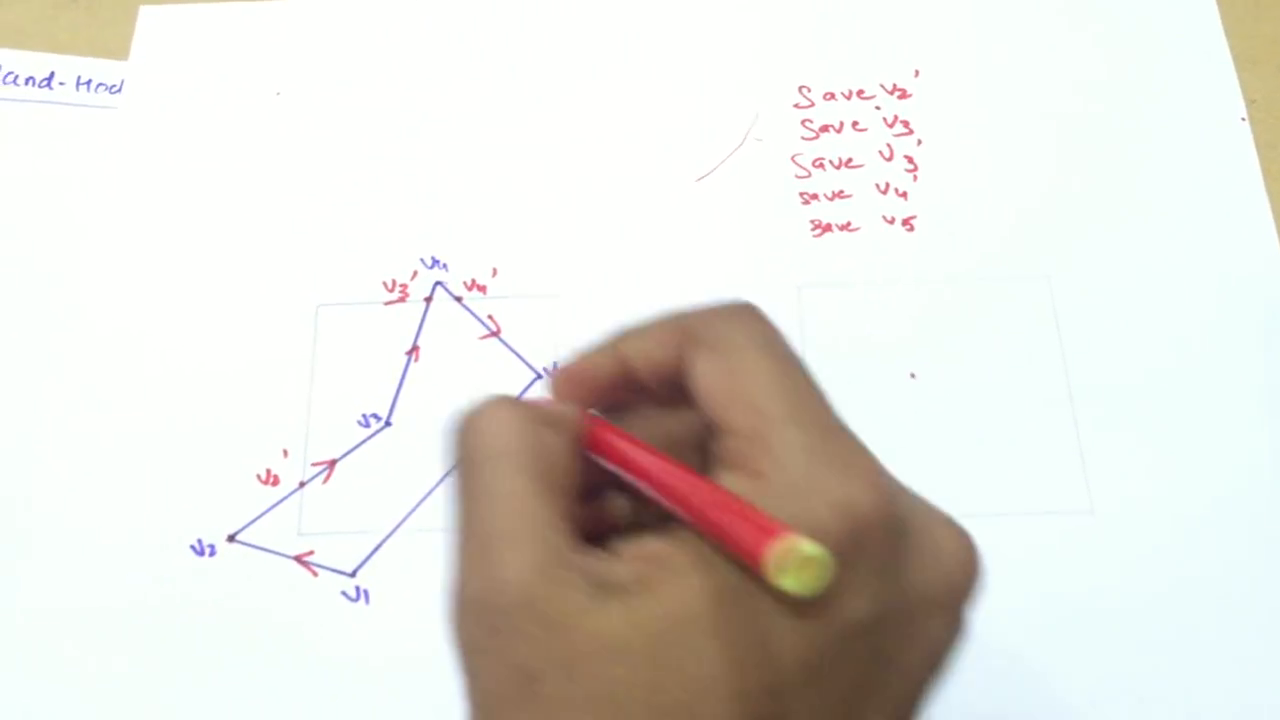 land-Hod
Save v2'
Save v3
Save v3'
save v4'
save v5
v4
v3'
v4'
v3
v2'
v2
v1